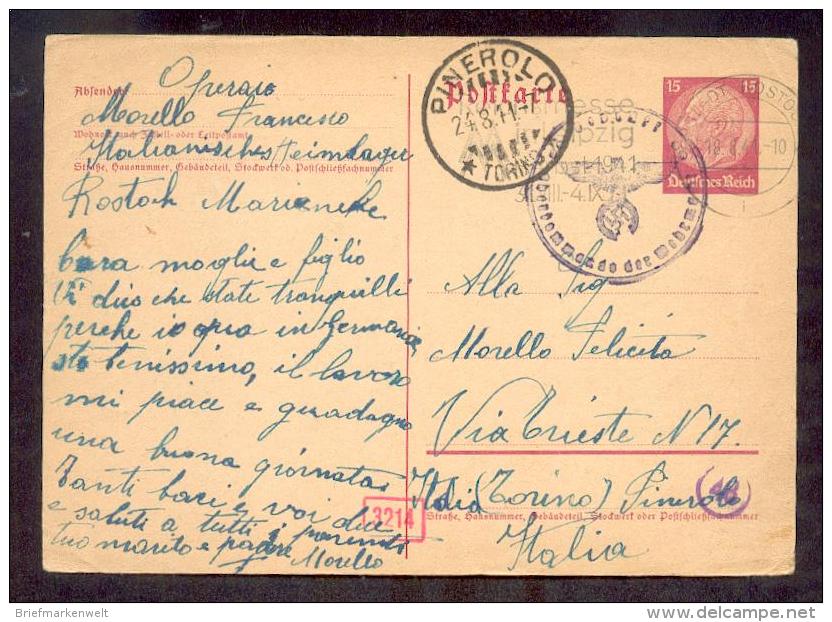 Absender:
Operaio
Morello Francesco
Wohnort, auch Zustell- oder Leitpostamt
Italianisches Heimlager
Straße, Hausnummer, Gebäudeteil, Stockwerk od. Postschließfachnummer
Rostoch Marieneke
Cara moglie e figlio
Vi dico che state tranquilli
perche io qua in Germania
sto benissimo, il lavoro
mi piace e guadagno
una buona giornata
Tanti baci e voi due
e saluti a tutti i parenti
tuo marito e padre
Morello
3214
Postkarte
PINEROLO
24.8.41
TORINO
messe
Leipzig
1941
geöffnet
Oberkommando der Wehrmacht
15 15
Deutsches Reich
ROSTOCK
18.8.41.-10
Alla Sig
Morello Felicita
Via Trieste N 17.
Italia (Torino) Pinerolo
Straße, Hausnummer, Gebäudeteil, Stockwerk oder Postschließfachnummer
Italia
Briefmarkenwelt
delcampe.net